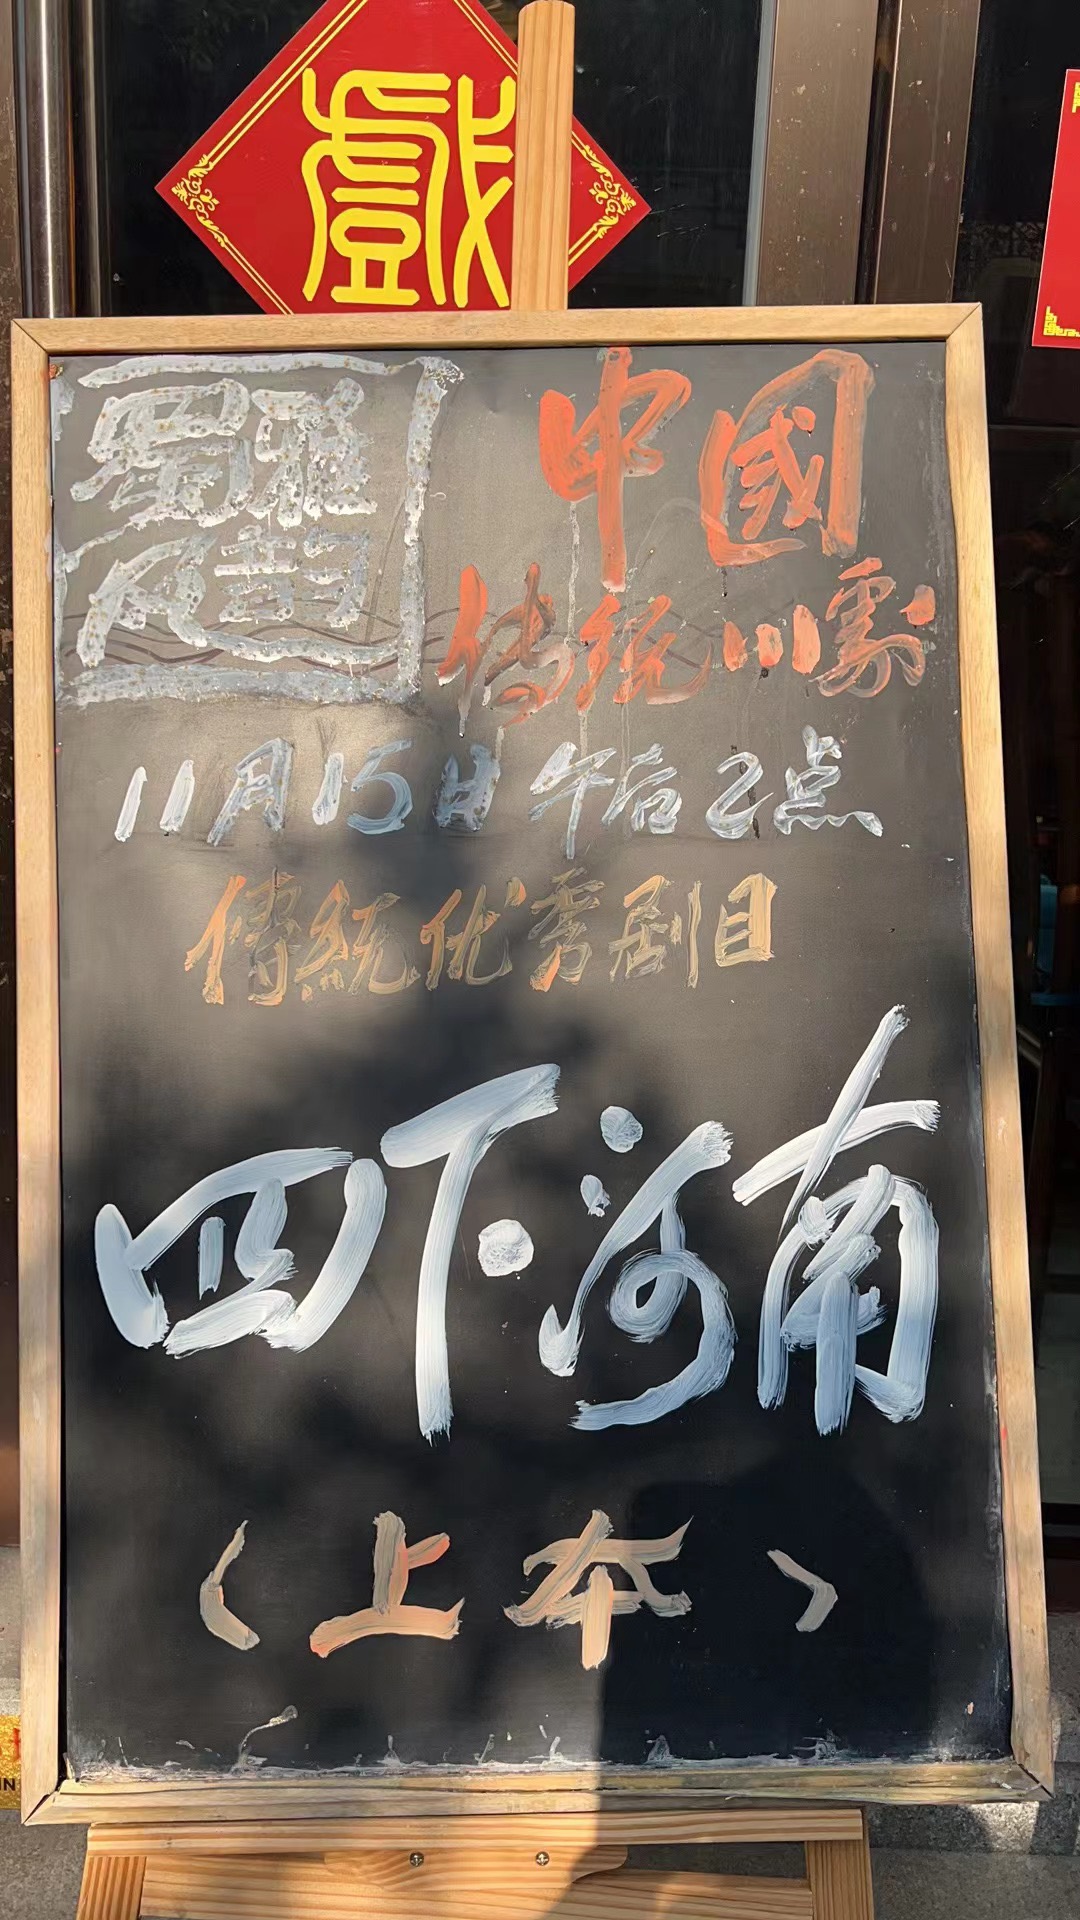 戲
蜀雅
尺韵
中國
传统川剧
11月15日午后2点
傳統优秀剧目
四下河南
(上本)